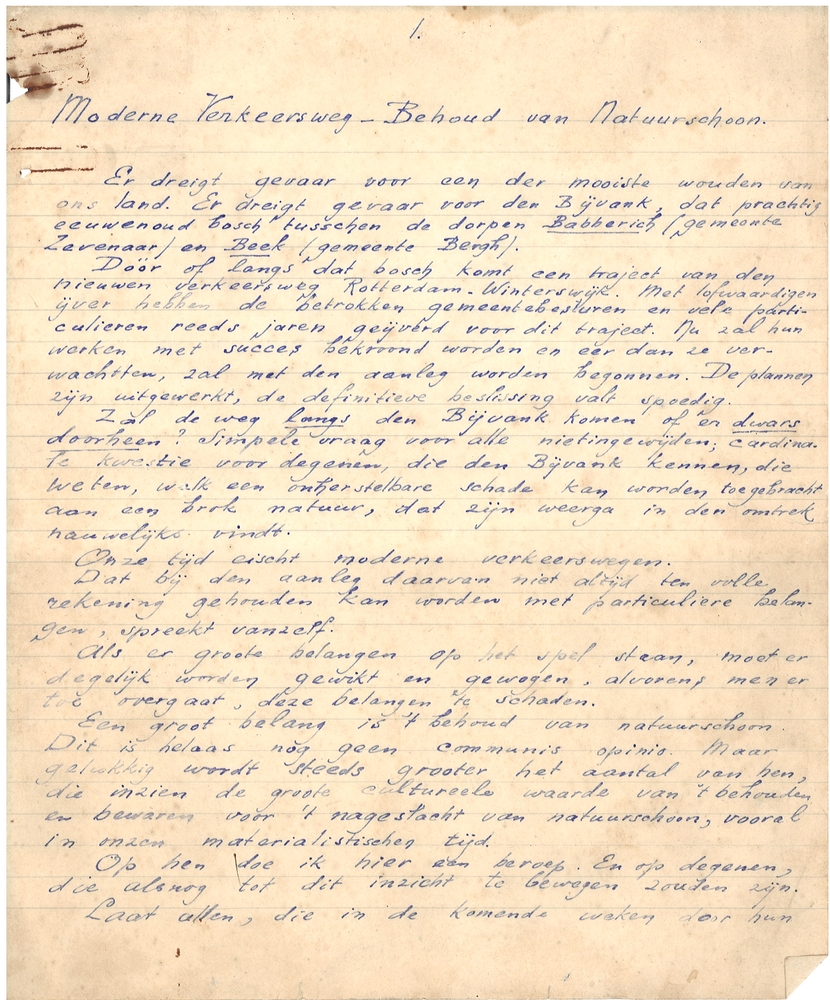 1.
Moderne Verkeersweg – Behoud van Natuurschoon.
Er dreigt gevaar voor een der mooiste wouden van
ons land. Er dreigt gevaar voor den Bijvank, dat prachtig
eeuwenoud bosch tusschen de dorpen Babberich (gemeente
Zevenaar) en Beek (gemeente Bergh).
Dóór of langs dat bosch komt een traject van den
nieuwen verkeersweg Rotterdam-Winterswijk. Met lofwaardigen
ijver hebben de betrokken gemeentebesturen en vele parti-
culieren reeds jaren geijverd voor dit traject. Nu zal hun
werken met succes bekroond worden en eer dan ze ver-
wachtten, zal met den aanleg worden begonnen. De plannen
zijn uitgewerkt, de definitieve beslissing valt spoedig.
Zal de weg langs den Bijvank komen of er dwars
doorheen? Simpele vraag voor alle nietingewijden; cardina-
le kwestie voor degenen, die den Bijvank kennen, die
weten, welk een onherstelbare schade kan worden toegebracht
aan een brok natuur, dat zijn weerga in den omtrek
nauwelijks vindt.
Onze tijd eischt moderne verkeerswegen.
Dat bij den aanleg daarvan niet altijd ten volle
rekening gehouden kan worden met particuliere belan-
gen, spreekt vanzelf.
Als er groote belangen op het spel staan, moet er
degelijk worden gewikt en gewogen, alvorens men er
toe overgaat, deze belangen te schaden.
Een groot belang is 't behoud van natuurschoon.
Dit is helaas nog geen communis opinio. Maar
gelukkig wordt steeds grooter het aantal van hen,
die inzien de groote cultureele waarde van 't behouden
en bewaren voor 't nageslacht van natuurschoon, vooral
in onzen materialistischen tijd.
Op hen doe ik hier een beroep. En op degenen,
die alsnog tot dit inzicht te bewegen zouden zijn.
Laat allen, die in de komende weken door hun